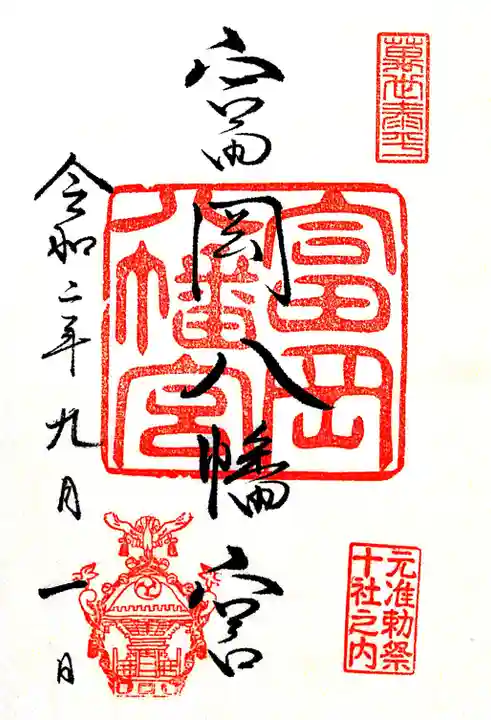 萬世泰平
富岡八幡宮
富岡八幡宮
元准勅祭
十社之内
令和二年九月一日